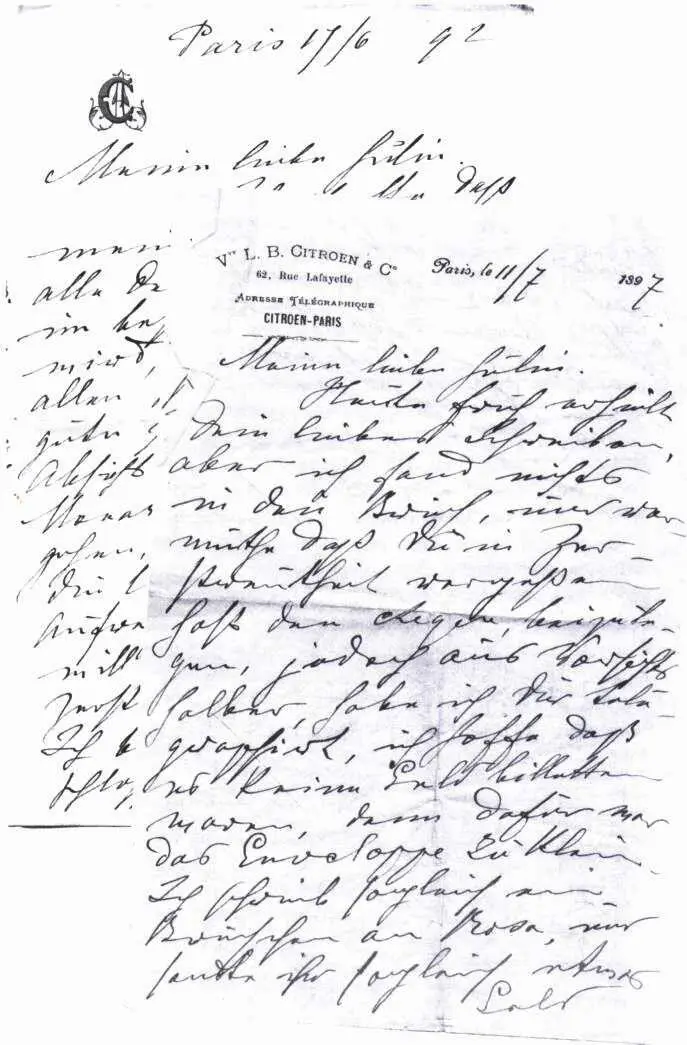 Paris 17/6 92
C
Meine liebe
daß
mein
alle De
im be
wird,
allen
gute
Absicht
gehen,
die
Aufwe
will
zerst
Ich
Vve L. B. CITROEN & Co
62, Rue Lafayette
ADRESSE TÉLÉGRAPHIQUE
CITROEN-PARIS
Paris, le 11/7 1897
Meine liebe
Heute früh erhielt
Dein liebes Schreiben,
aber ich fand nichts
in den Brief, nur ver-
muthe daß Du in Zer-
streutheit vergeßen
hast den beizule-
gen, jedoch aus Vorsicht
halber, habe ich Dir tele-
graphirt, ich hoffe daß
es keine Geld billetten
waren, denn dafür war
das Enveloppe zu klein.
Ich schrieb sogleich ein
Briefchen an Rosa, und
sandte ihr sogleich etwas
Geld